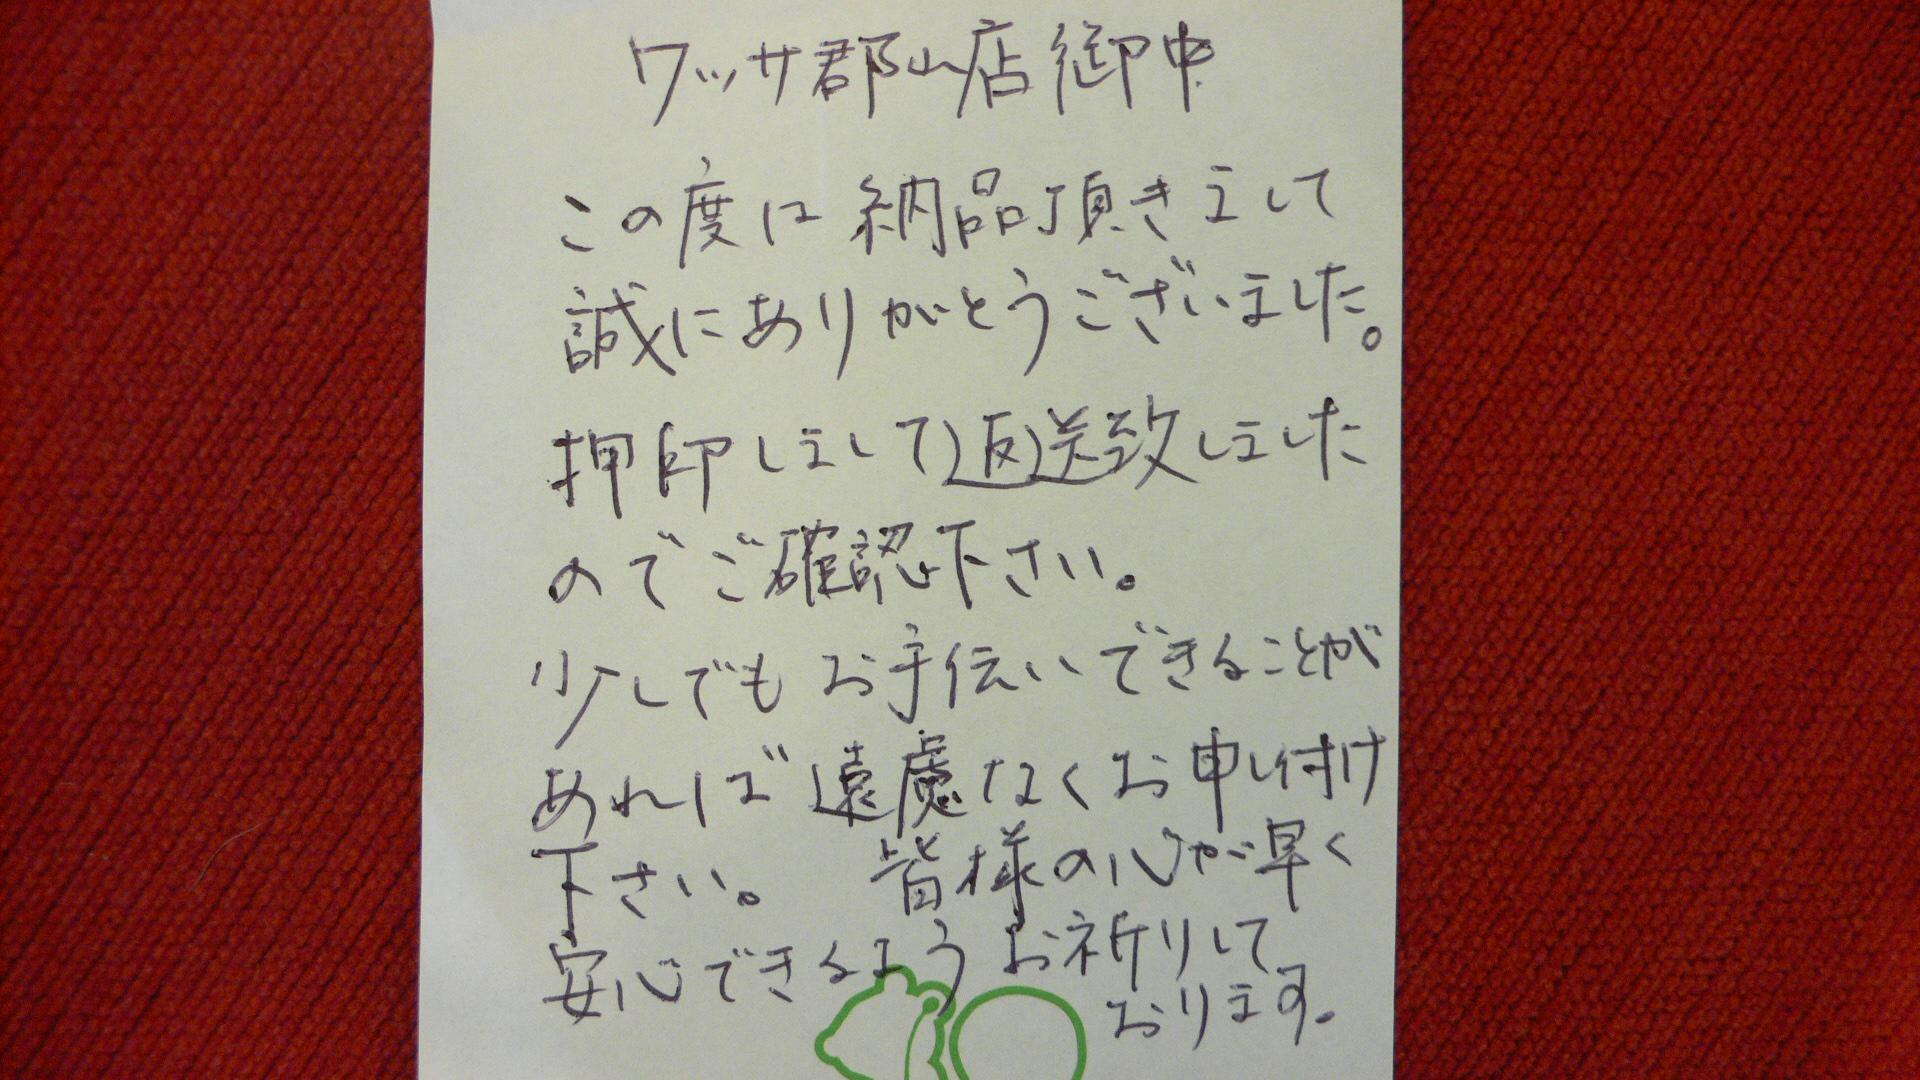 ワッサ郡山店御中
この度は納品頂きまして
誠にありがとうございました。
押印しまして返送致しました
のでご確認下さい。
少しでもお手伝いできることが
あれば遠慮なくお申し付け
下さい。 皆様の心が早く
安心できるようお祈りして
おります。